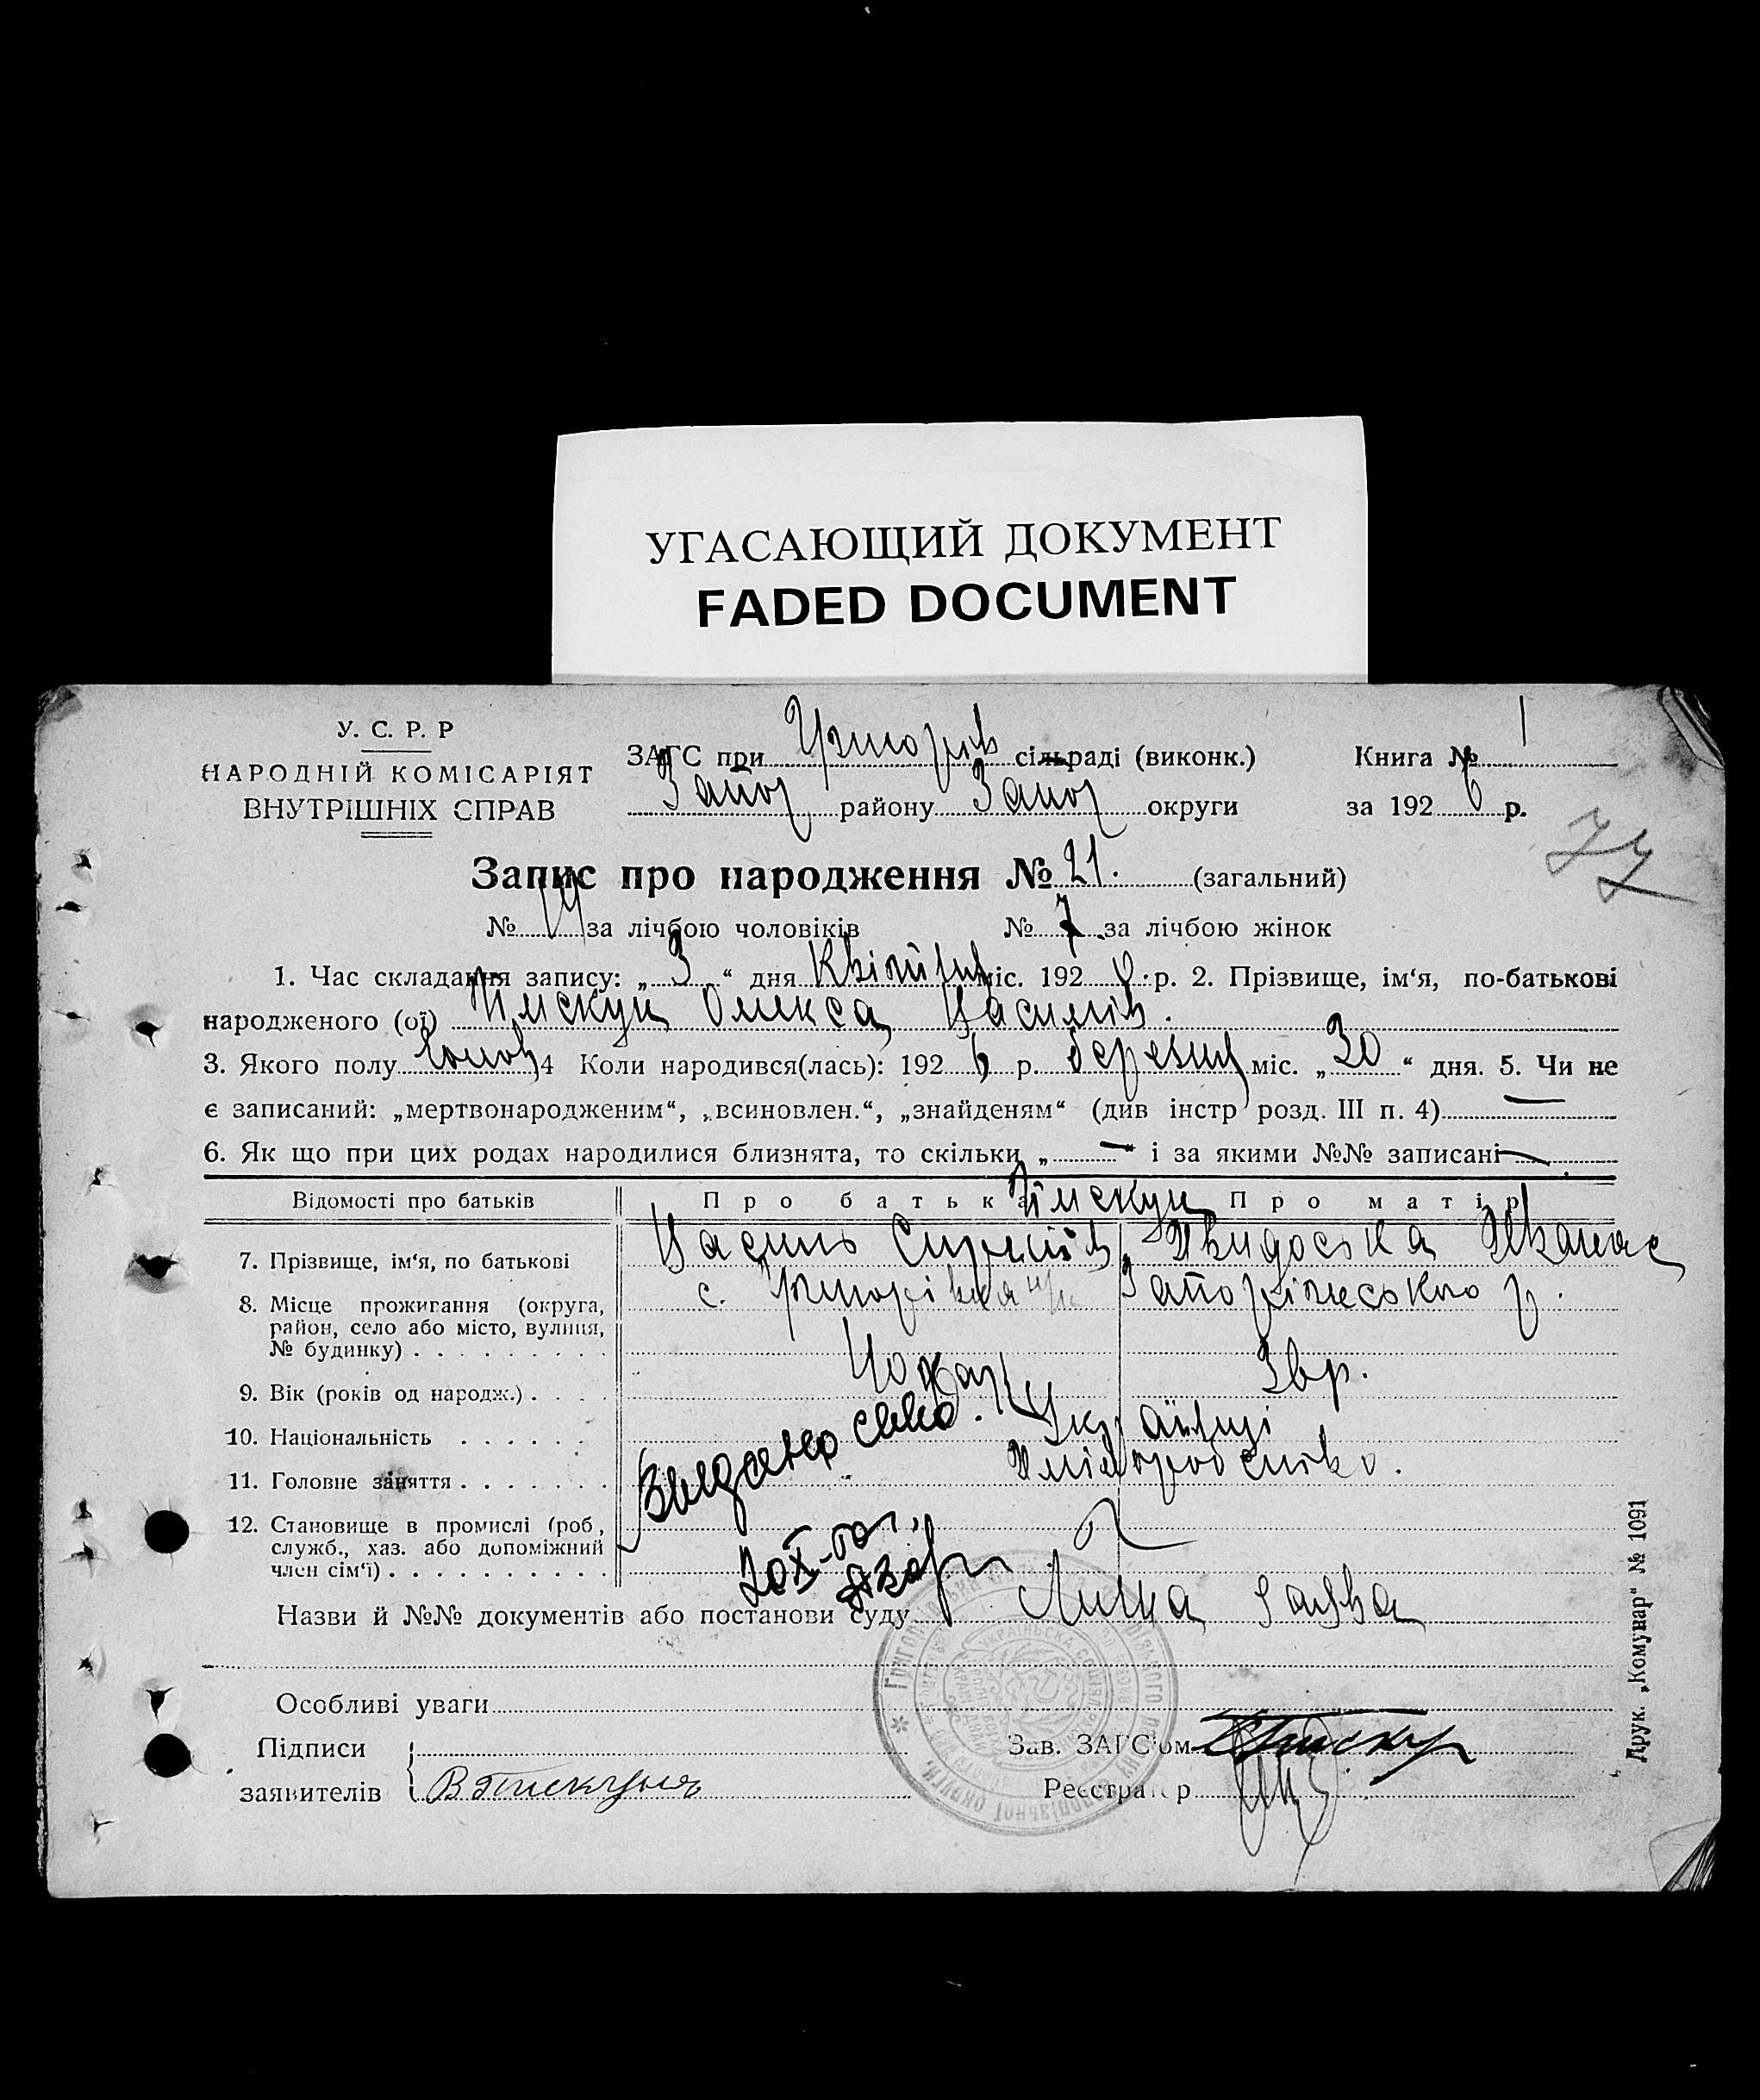 УГАСАЮЩИЙ ДОКУМЕНТ
FADED DOCUMENT
У. С. Р. Р
НАРОДНІЙ КОМІСАРІЯТ
ВНУТРІШНІХ СПРАВ
ЗАГС при Григорів сільраді (виконк.) Книга № 1
Запор району Запор округи за 1926 р.
77
Запис про народження № 21. (загальний)
№ 14 за лічбою чоловіків № 7 за лічбою жінок
1. Час складання запису: „3“ дня Квітня міс. 1926 р. 2. Прізвище, ім‘я, по-батькові
народженого (ої) Пискун Олекса Василів.
3. Якого полу чолов 4 Коли народився(лась): 1926 р. березня міс. „30“ дня. 5. Чи не
є записаний: „мертвонародженим“, „всиновлен.“, „знайденям“ (див інстр розд. III п. 4) —
6. Як що при цих родах народилися близнята, то скільки „—“ і за якими №№ записані —
Відомості про батьків Про батька Про матір
Пискун
7. Прізвище, ім‘я, по батькові Василь Явдоська
8. Місце прожигання (округа, с. Григорівка Запоріжського р.
район, село або місто, вулиця,
№ будинку)
9. Вік (років од народж.)
10. Національність Українці
11. Головне заняття Хліборобство.
12. Становище в промислі (роб,
служб., хаз. або допоміжний
член сім‘ї)
Назви й №№ документів або постанови суду Лична заява
Особливі уваги
Підписи
заявителів В Пискун
Зав. ЗАГС‘ом
Реєстратор
Друк. „Комунар“ № 1091